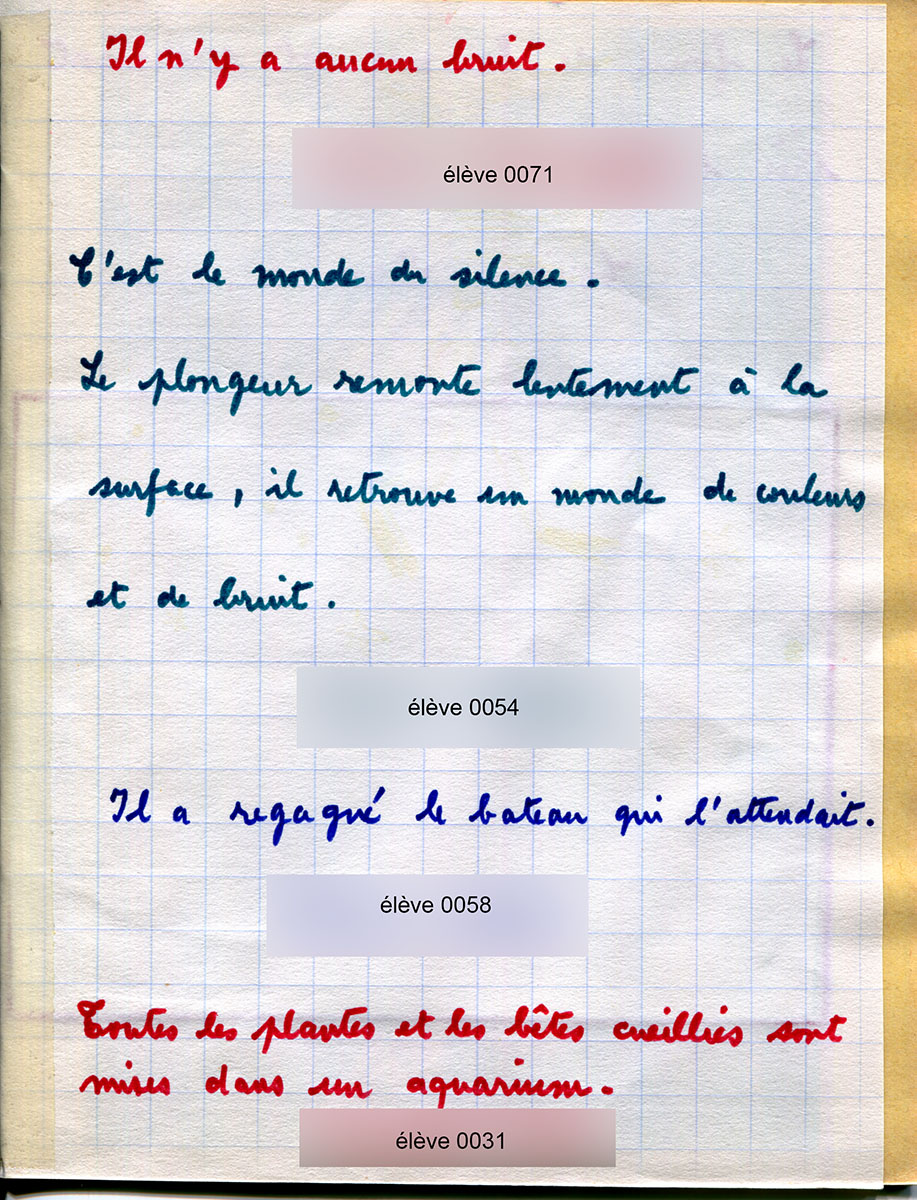 Il n'y a aucun bruit.
élève 0071
C'est le monde du silence.
Le plongeur remonte lentement à la
surface, il retrouve un monde de couleurs
et de bruit.
élève 0054
Il a regagné le bateau qui l'attendait.
élève 0058
Toutes les plantes et les bêtes cueillies sont
mises dans un aquarium.
élève 0031